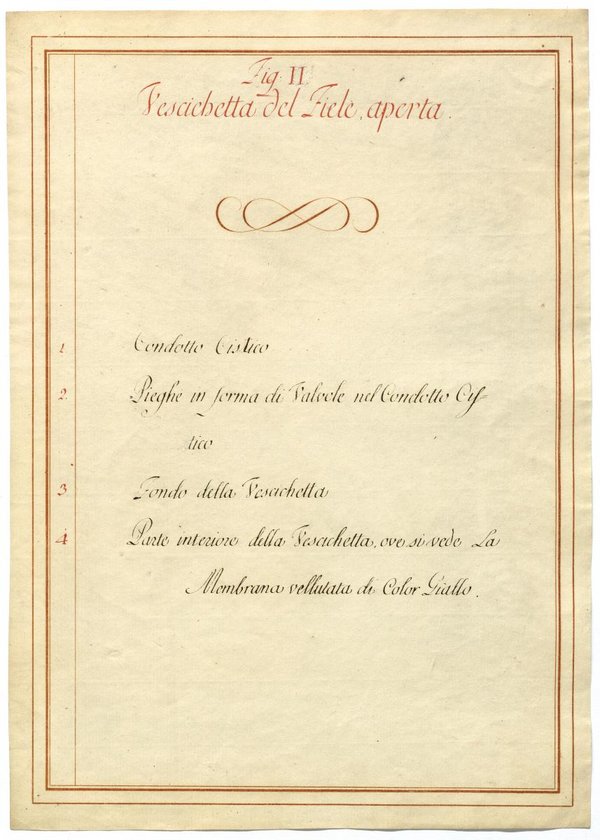 Fig. II
Vescichetta del Fiele, aperta.
1. Condotto Cistico
2. Pieghe in forma di Valvole nel Condotto Cis-
tico
3. Fondo della Vescichetta
4. Parte interiore della Vescichetta, ove si vede La
Membrana vellutata di Color Giallo.